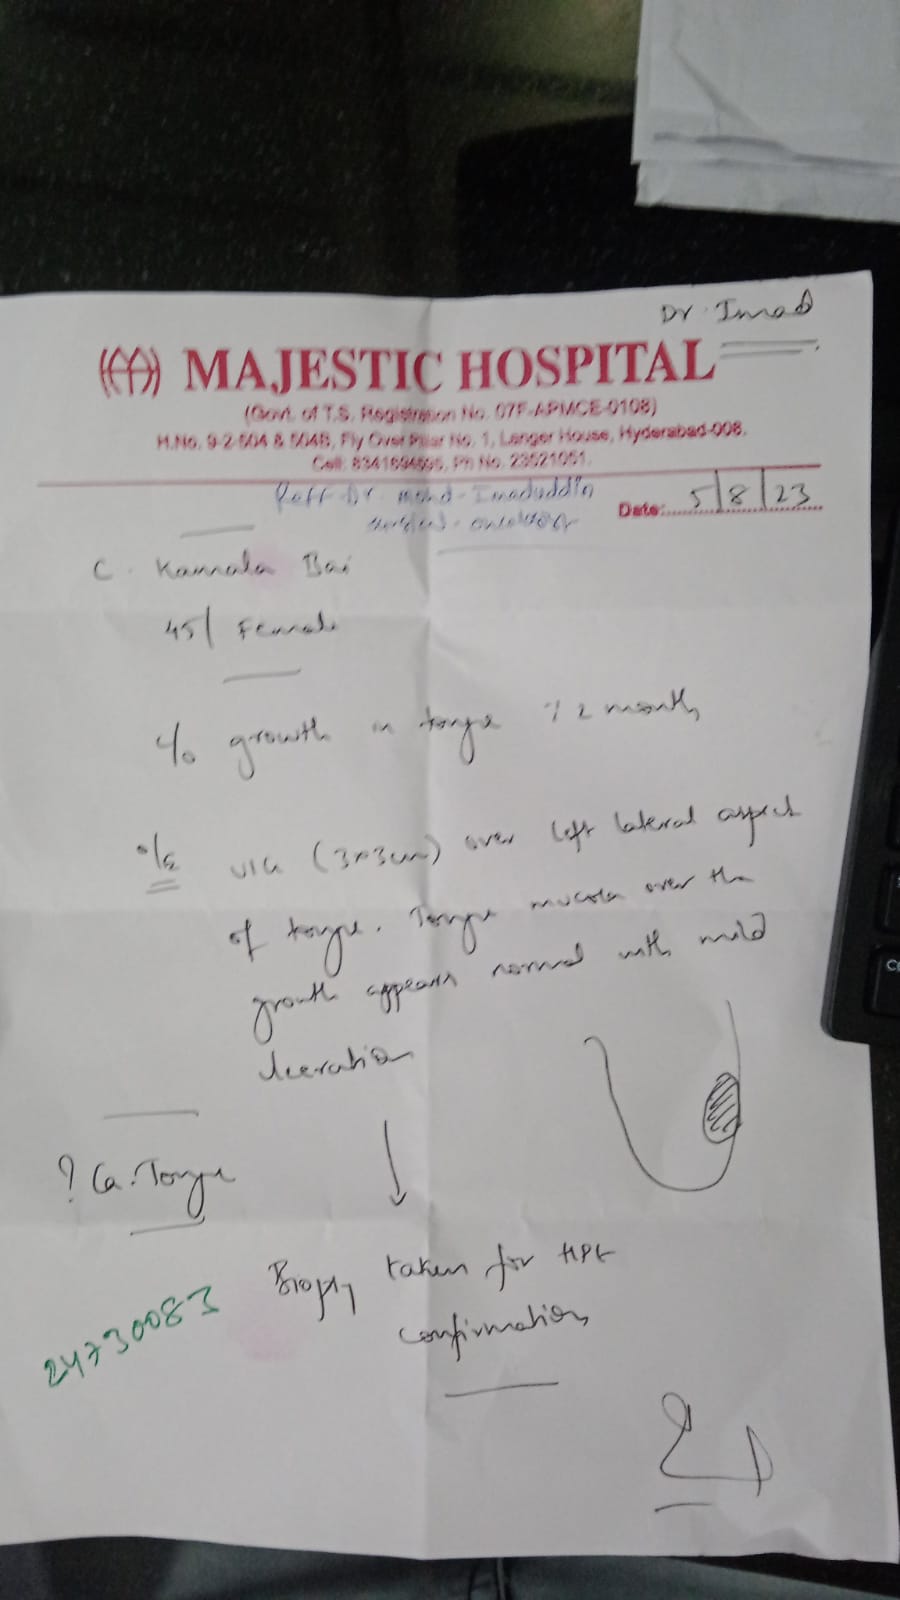 Dr. Imad
MAJESTIC HOSPITAL
(Govt. of T.S. Registration No. 07F-APMCE-0108)
H.No. 9-2-504 & 504B, Fly Over Pillar No. 1, Langer House, Hyderabad-008.
Cell: 8341694595, Ph No. 23521051.
Reff Dr. Mohd. Imaduddin
Date: 5/8/23
C. Kamala Bai
45/ Female
c/o growth in tongue 2 month
o/e (3x3cm) over left lateral aspect
of tongue. Tongue mucosa over the
growth appears normal with mild
ulceration
? Ca. Tongue
Biopsy taken for HPE
confirmation
24730083